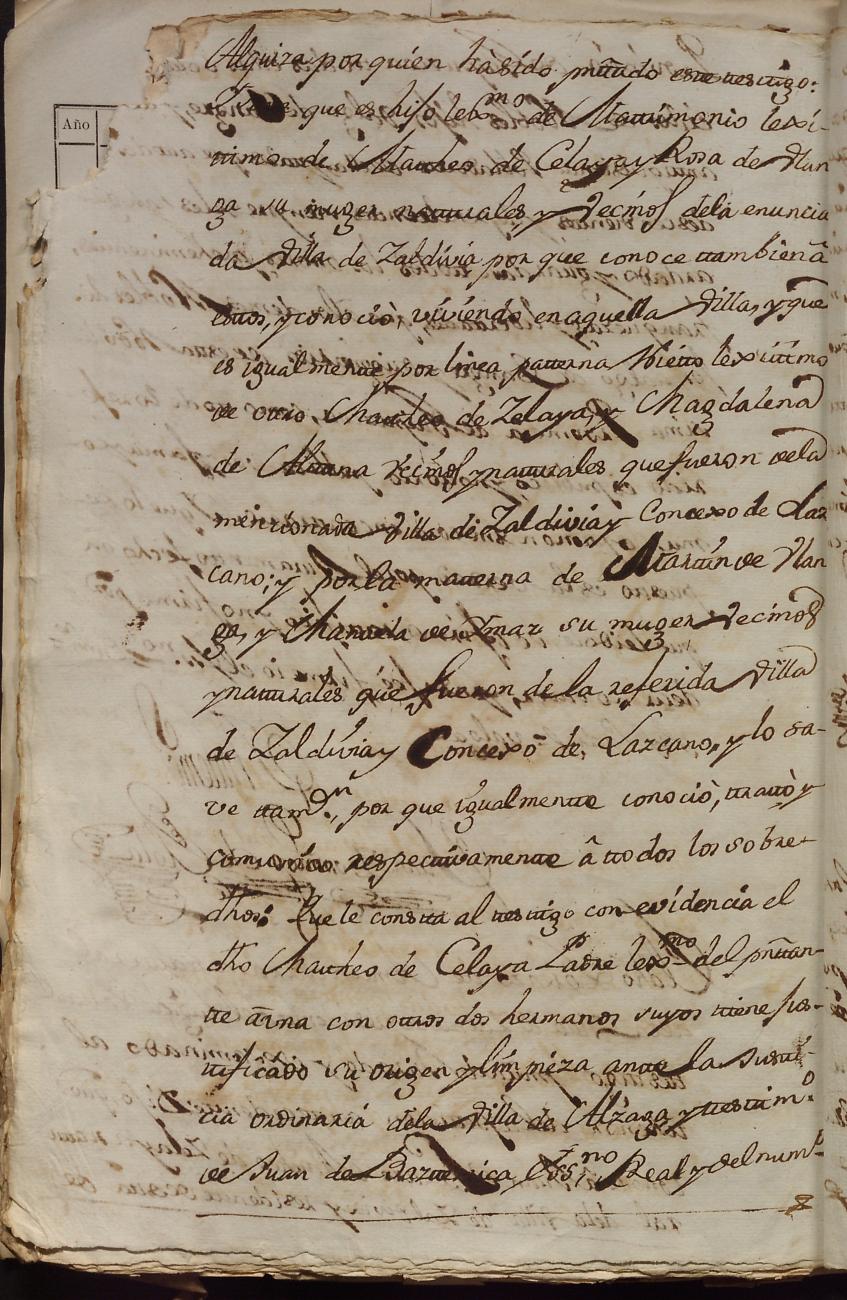 Año
Alquiza por quien hà sido pñtado este testigo:
que es hijo lexmo de Matrimonio lexi-
timo de Matheo de Celaya y Rosa de Yan
za su muger naturales, y Vecinos dela enuncia
da Villa de Zaldivia por que conoce tambien â
estos, y conociò viviendo en aquella Villa, y que
es igualmente por linea paterna Nietto lexitimo
de otro Matheo de Zelaya, y Magdalena
de vecinos y naturales que fueron dela
mencionada Villa de Zaldivia y Concexo de Laz
cano; y por la materna de Martin de Yan
za, y Manuela de su muger Vecinos
y naturales que fueron de la referida Villa
de Zaldivia y Concexo de Lazcano, y lo sa-
ve tamvn, por que igualmente conociò, tratò y
comunico respectivamente â ttodos los sobre-
dhos: Que le consta al testigo con evidencia el
dho Matheo de Celaya Padre lexmo del pñtan-
te con otros dos hermanos suyos tiene jus-
tificado su origen y limpieza ante la Justi-
cia ordinaria dela Villa de Alzaga y testimo
de Juan de Essno Real y del nume